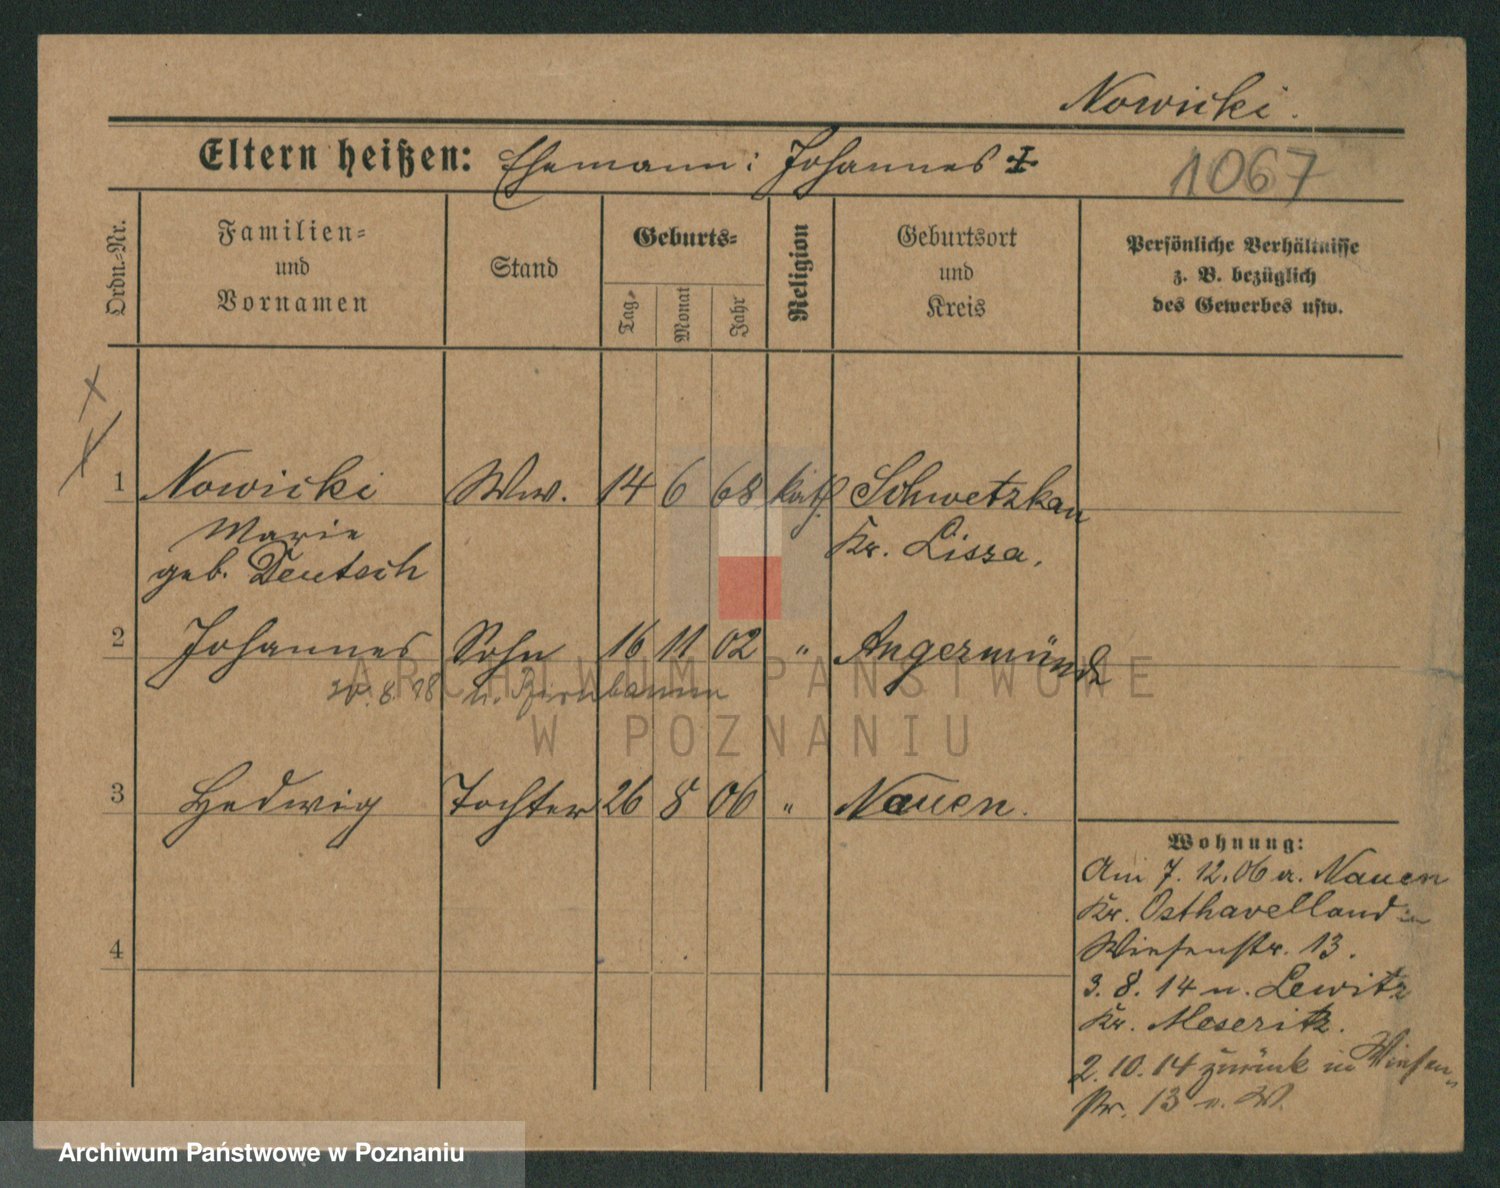 Nowicki.
Eltern heißen: Ehemann: Johannes ‡
1067
Ordn.-Nr.
Familien-
und
Vornamen
Stand
Geburts-
Tag
Monat
Jahr
Religion
Geburtsort
und
Kreis
Persönliche Verhältnisse
z. B. bezüglich
des Gewerbes usw.
1 Nowicki Ww. 14 6 68 kath. Schwetzkau
Marie Kr. Lissa.
geb. Deutsch
2 Johannes Sohn 16 11 02 " Angermünde
8. 18 n. Birnbaum
3 Hedwig Tochter 26 8 06 " Nauen.
4
Wohnung:
Am 7. 12. 06 a. Nauen
Kr. Osthavelland in
Wiesenstr. 13.
3. 8. 14 n. Lewitz
Kr. Meseritz.
2. 10. 14 zurück in Wiesen-
str. 13 W.
ARCHIWUM PAŃSTWOWE
W POZNANIU
Archiwum Państwowe w Poznaniu